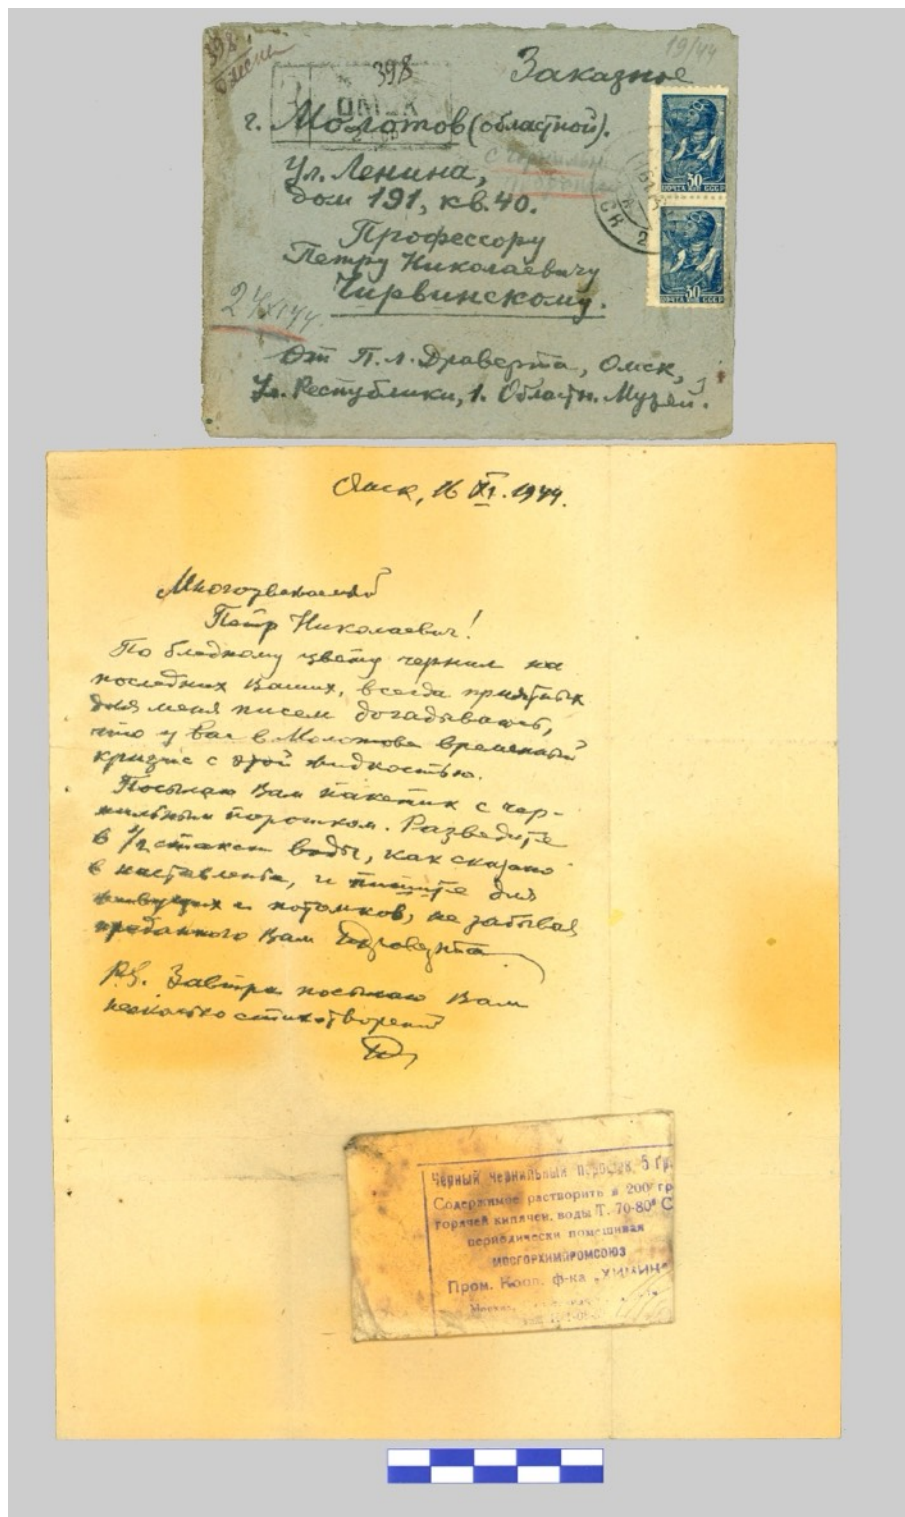 398
19/44
398
Заказное
ОМСК
г. Молотов (областной).
с чернильн.
Ул. Ленина,
дом 191, кв. 40.
Профессору
Петру Николаевичу
Чирвинскому.
30
ПОЧТА СССР
30
ПОЧТА СССР
От П. Л. Драверта, Омск,
Ул. Республики, 1. Областн. Музей.
Омск, 16 XI. 1944.
Многоуважаемый
Петр Николаевич!
По бледному цвету чернил на
последних Ваших, всегда приятных
для меня писем догадываюсь,
что у вас в Молотове временный
кризис с этой жидкостью.
Посылаю Вам пакетик с чер-
нильным порошком. Разведите
в 1/2 стакан воды, как сказано
в наставленьи, и пишите для
живущих и потомков, не забывая
преданного Вам Драверта
P.S. Завтра посылаю Вам
несколько стихотворений
Черный чернильный порошок 5 гр.
Содержимое растворить в 200 гр
горячей кипячен. воды Т. 70-80° С
периодически помешивая
МОСГОРХИМПРОМСОЮЗ
Пром. Кооп. ф-ка „ХИМИК"
Москва,